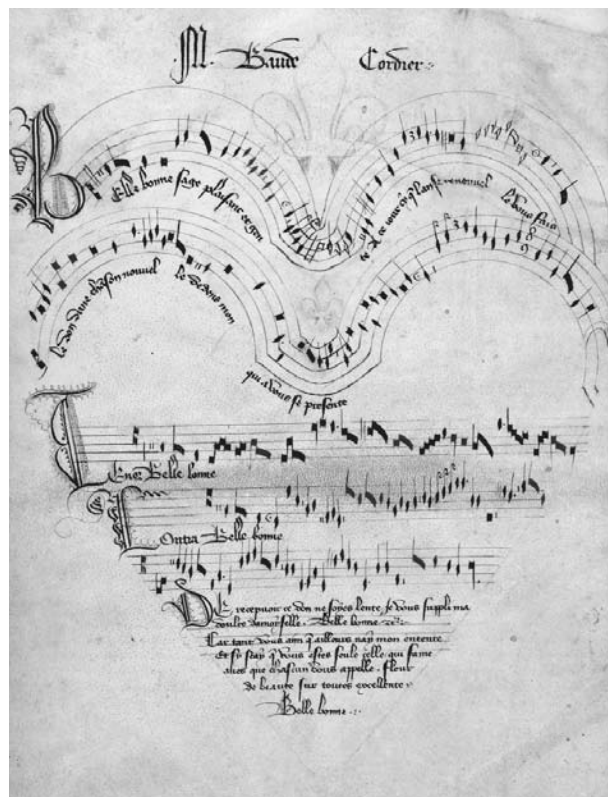 M. Baude Cordier
Belle bonne sage plaisant et gen
te A ce iour cy q lan se renouuel le vous fais
le don dune chanson nouuel le dedens mon
qui a vous se presente
Tenor Belle bonne
Contra Belle bonne
De recepuoir ce don ne soyes lente Je vous suppli ma
doulce damoyselle. Belle bonne
Car tant vous aim qaillours nay mon entente
Et sy scay q vous estes seule celle qui fame
aues que chascun vous appelle. fleur
de beaute sur toutes excellente
Belle bonne.